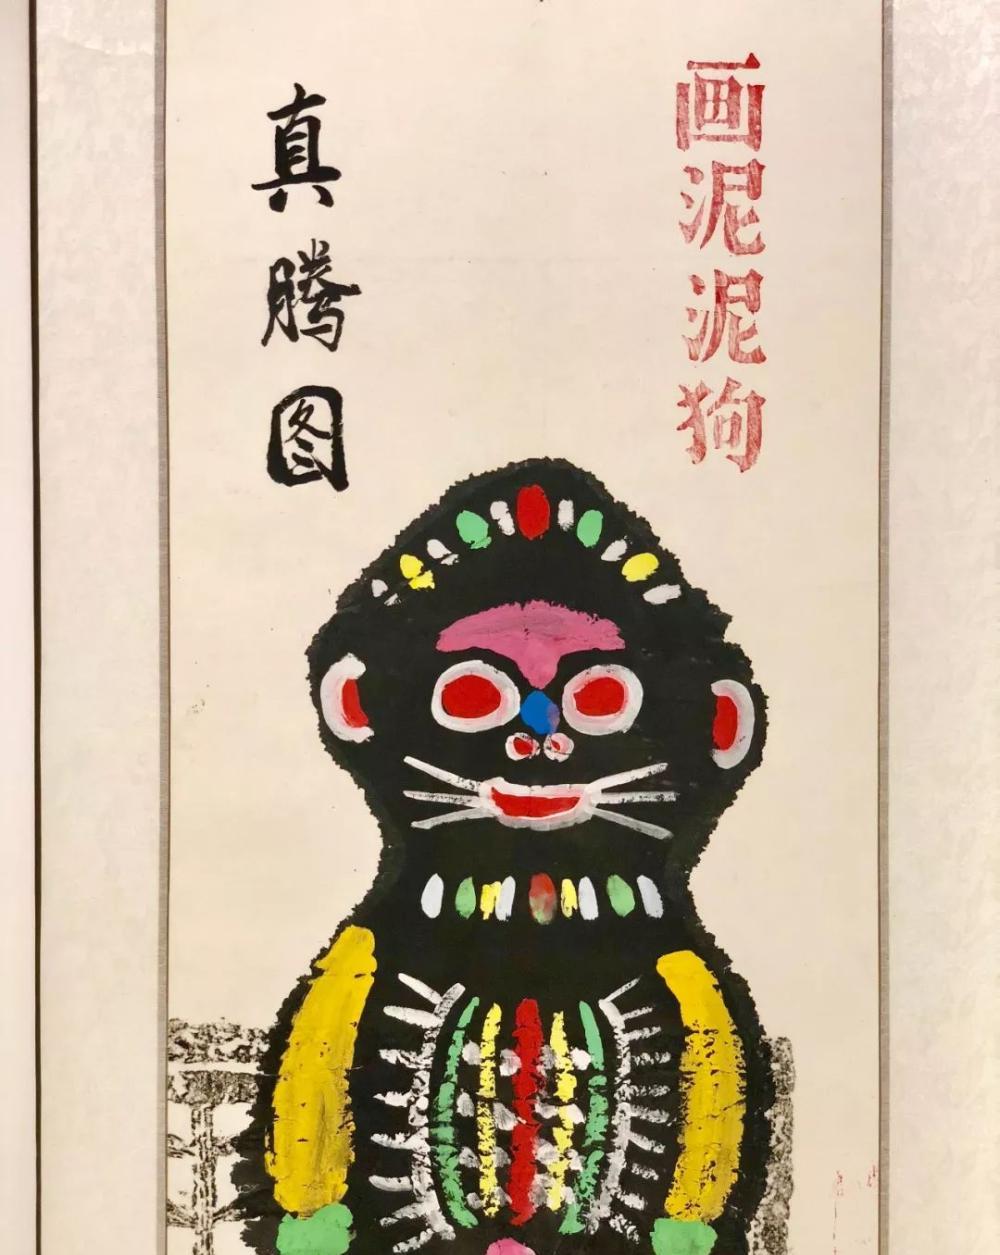 画泥泥狗
真腾图